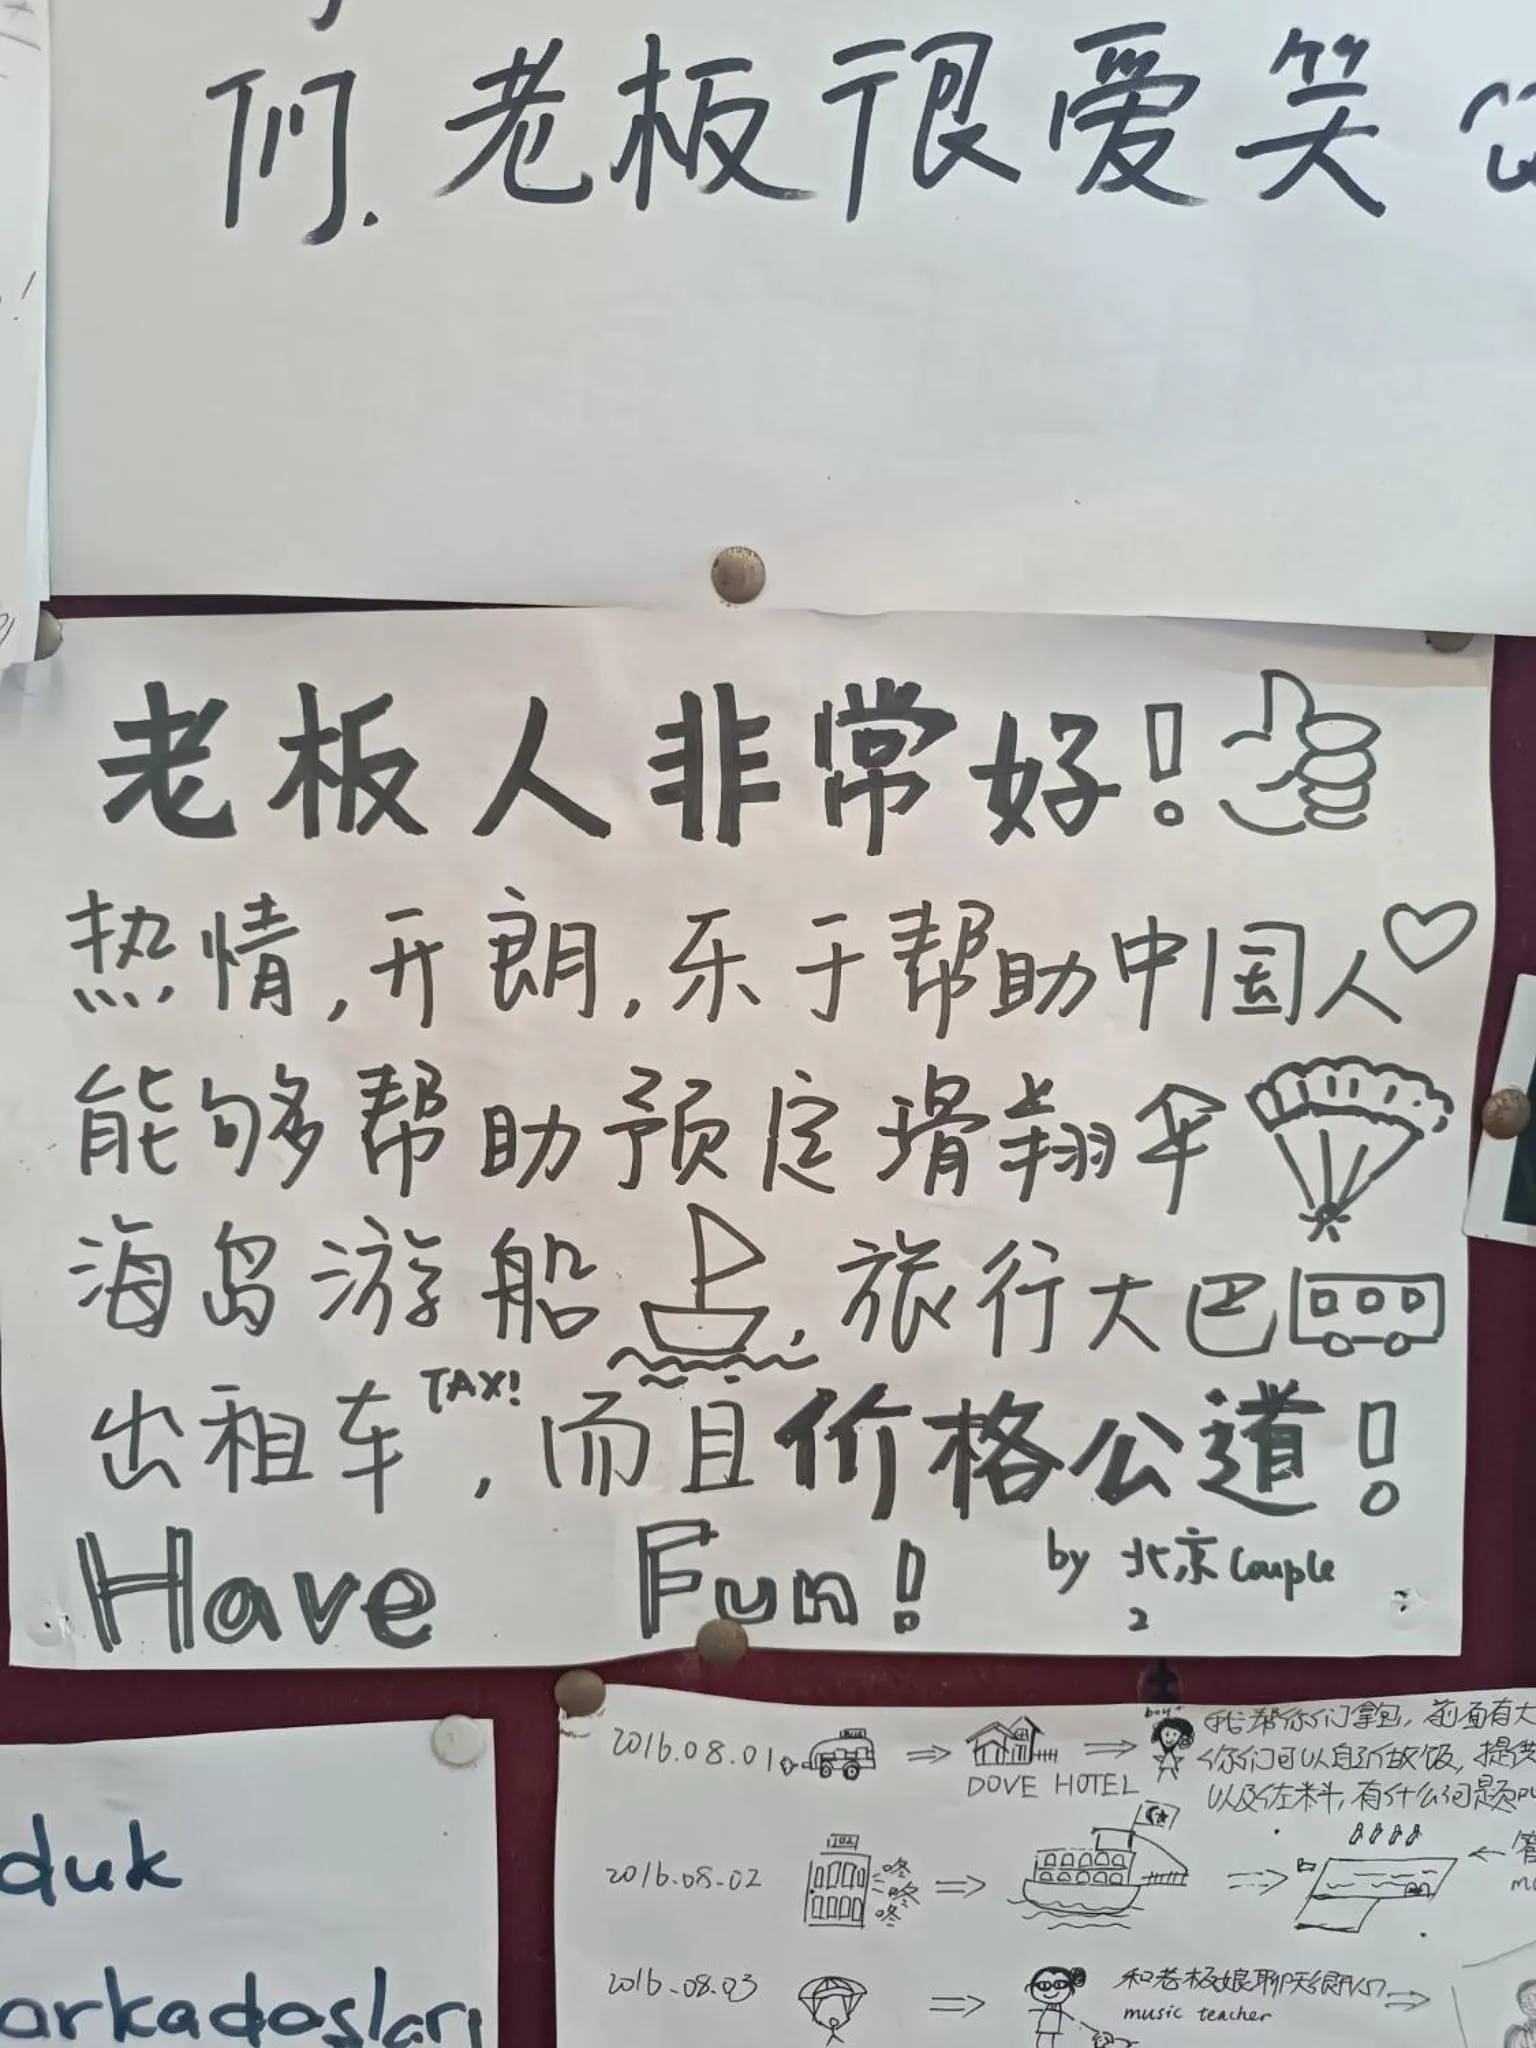 们.老板很爱笑
老板人非常好!
热情,开朗,乐于帮助中国人
能够帮助预定滑翔伞
海岛游船,旅行大巴
出租车TAXI,而且价格公道!
Have Fun! by 北京couple
2
duk
arkadaşları
2016.08.01
DOVE HOTEL
boy+
我帮你们拿包,前面有大
你们可以自所做饭,提供
以及佐料,有什么问题可以
2016.08.02
咚
咚
咚
2016.08.03
和老板娘聊天很开心
music teacher